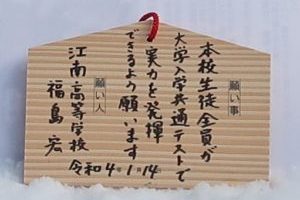 願い事
本校生徒全員が
大学入学共通テストで
実力を発揮
できるよう願います
令和4年1月14日
願い人
江南高等学校
福島宏